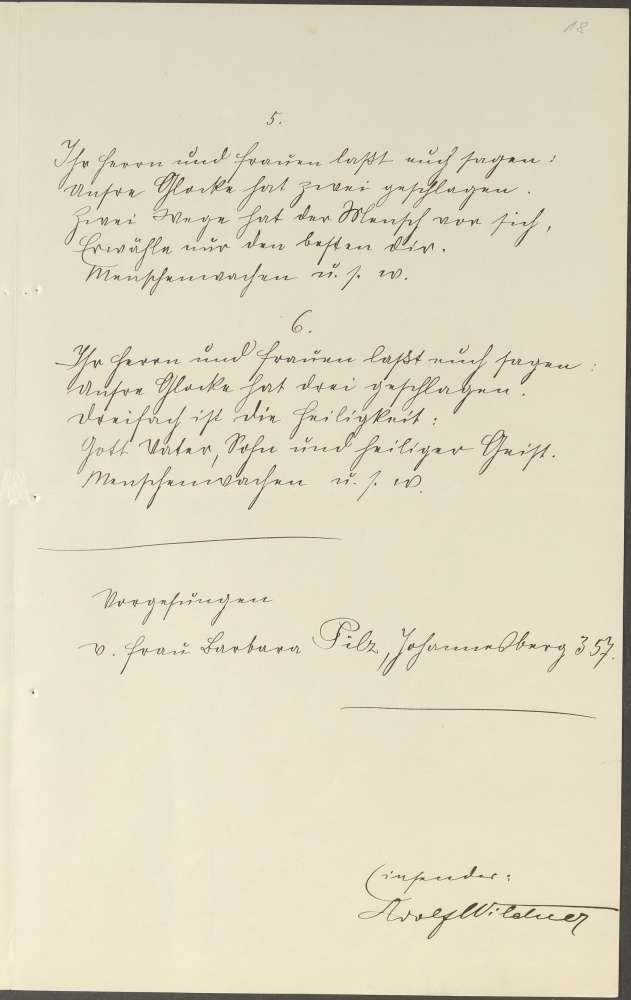 18
5.
Ihr Herrn und Frauen laßt euch sagen:
Unsre Glocke hat zwei geschlagen.
Zwei Wege hat der Mensch vor sich,
Erwähle nur den besten dir.
Menschenwachen u. s. w.
6.
Ihr Herrn und Frauen laßt euch sagen:
Unsre Glocke hat drei geschlagen.
Dreifach ist die Heiligkeit:
Gott Vater, Sohn und heiliger Geist.
Menschenwachen u. s. w.
Vorgesungen
v. Frau Barbara Pilz, Johannesberg 357.
Einsender:
Adolf Wildner